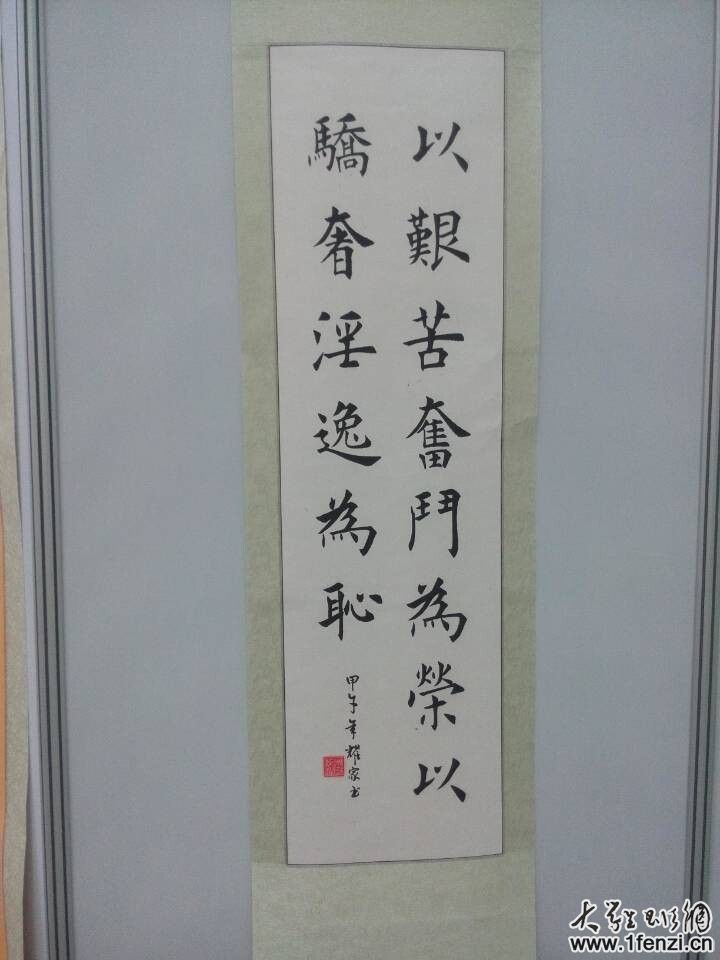 以艱苦奮鬥為榮以
驕奢淫逸為恥
甲午年耀家书
www.1fenzi.cn